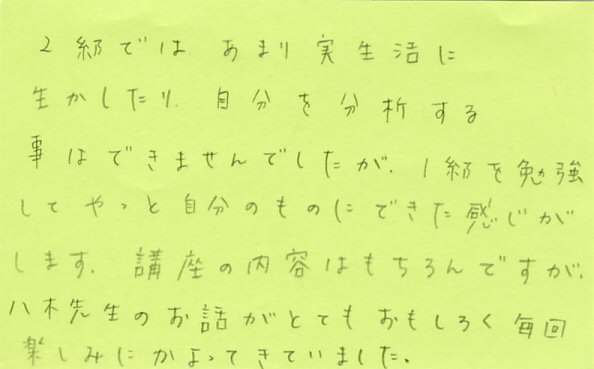 2級では あまり 実生活に
生かしたり、自分を分析する
事はできませんでしたが、1級を勉強
して やっと自分のものにできた感じが
します。講座の内容はもちろんですが、
八木先生のお話がとてもおもしろく毎回
楽しみにかよってきていました。